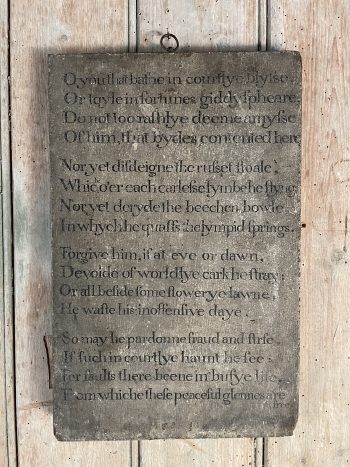 O you that bathe in courtlye blysse
Or toyle in fortunes giddy spheare,
Do not too rashlye deeme amysse
Of him, that bydes contented here
Nor yet disdeigne the russet stoale,
Whic o'er each carlesse lymbe he flyngs
Nor yet deryde the beechen bowle
In whych he quaffs the lympid springs.
Forgive him, if at eve or dawn,
Devoide of worldlye cark he stray;
Or all beside some flowerye lawne,
He waste his inoffensive daye.
So may he pardonne fraud and strife
If such in courtlye haunt he see;
For faults there beene in busye life,
From whiche these peaceful glennes are
free